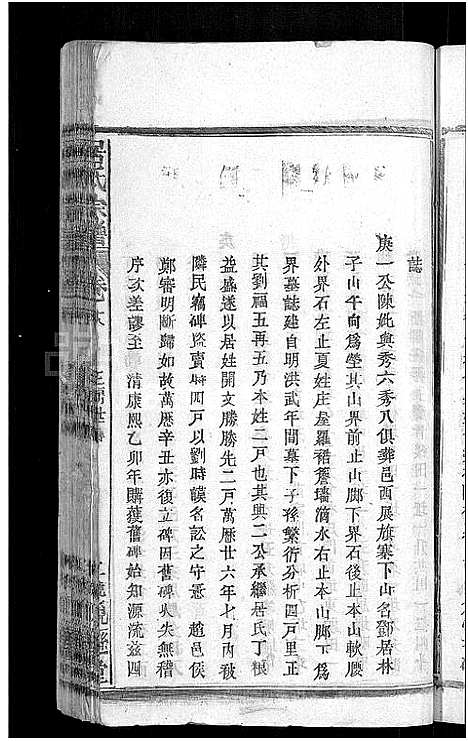 誌
庚一公陳妣與秀六秀八俱葬邑西展旗寨下山名鄧居林
子山午向為塋其山界前止山脚下界石後止本山軟腰
外界石左止夏姓庄屋羅𥘵簷墻滴水右止本山脚下為
界墓誌建自明洪武年間墓下子孫繁衍分析四戶里正
其劉福五再五乃本姓二戶也其與二公承繼居氏丁粮
益盛遂以居姓開文勝勝先二戶萬曆廿六年七月內被
隣民竊碑盜賣時四戶以劉時謨名訟之守憲　趙邑侯
鄭審明斷歸如故萬曆辛丑亦復立碑因舊碑與失無稽
序次差謬至　清康熙乙卯年購獲舊碑始知源流茲四
居氏宗譜　卷首